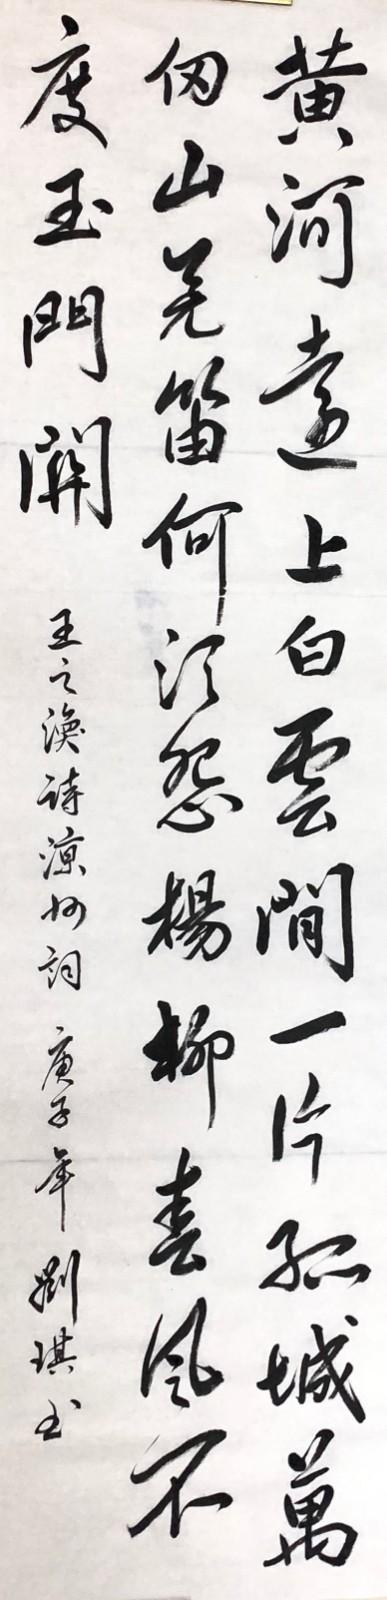 黄河遠上白雲間一片孤城萬
仞山羌笛何須怨楊柳春風不
度玉門關
王之渙詩涼州詞 庚子年 劉琪书